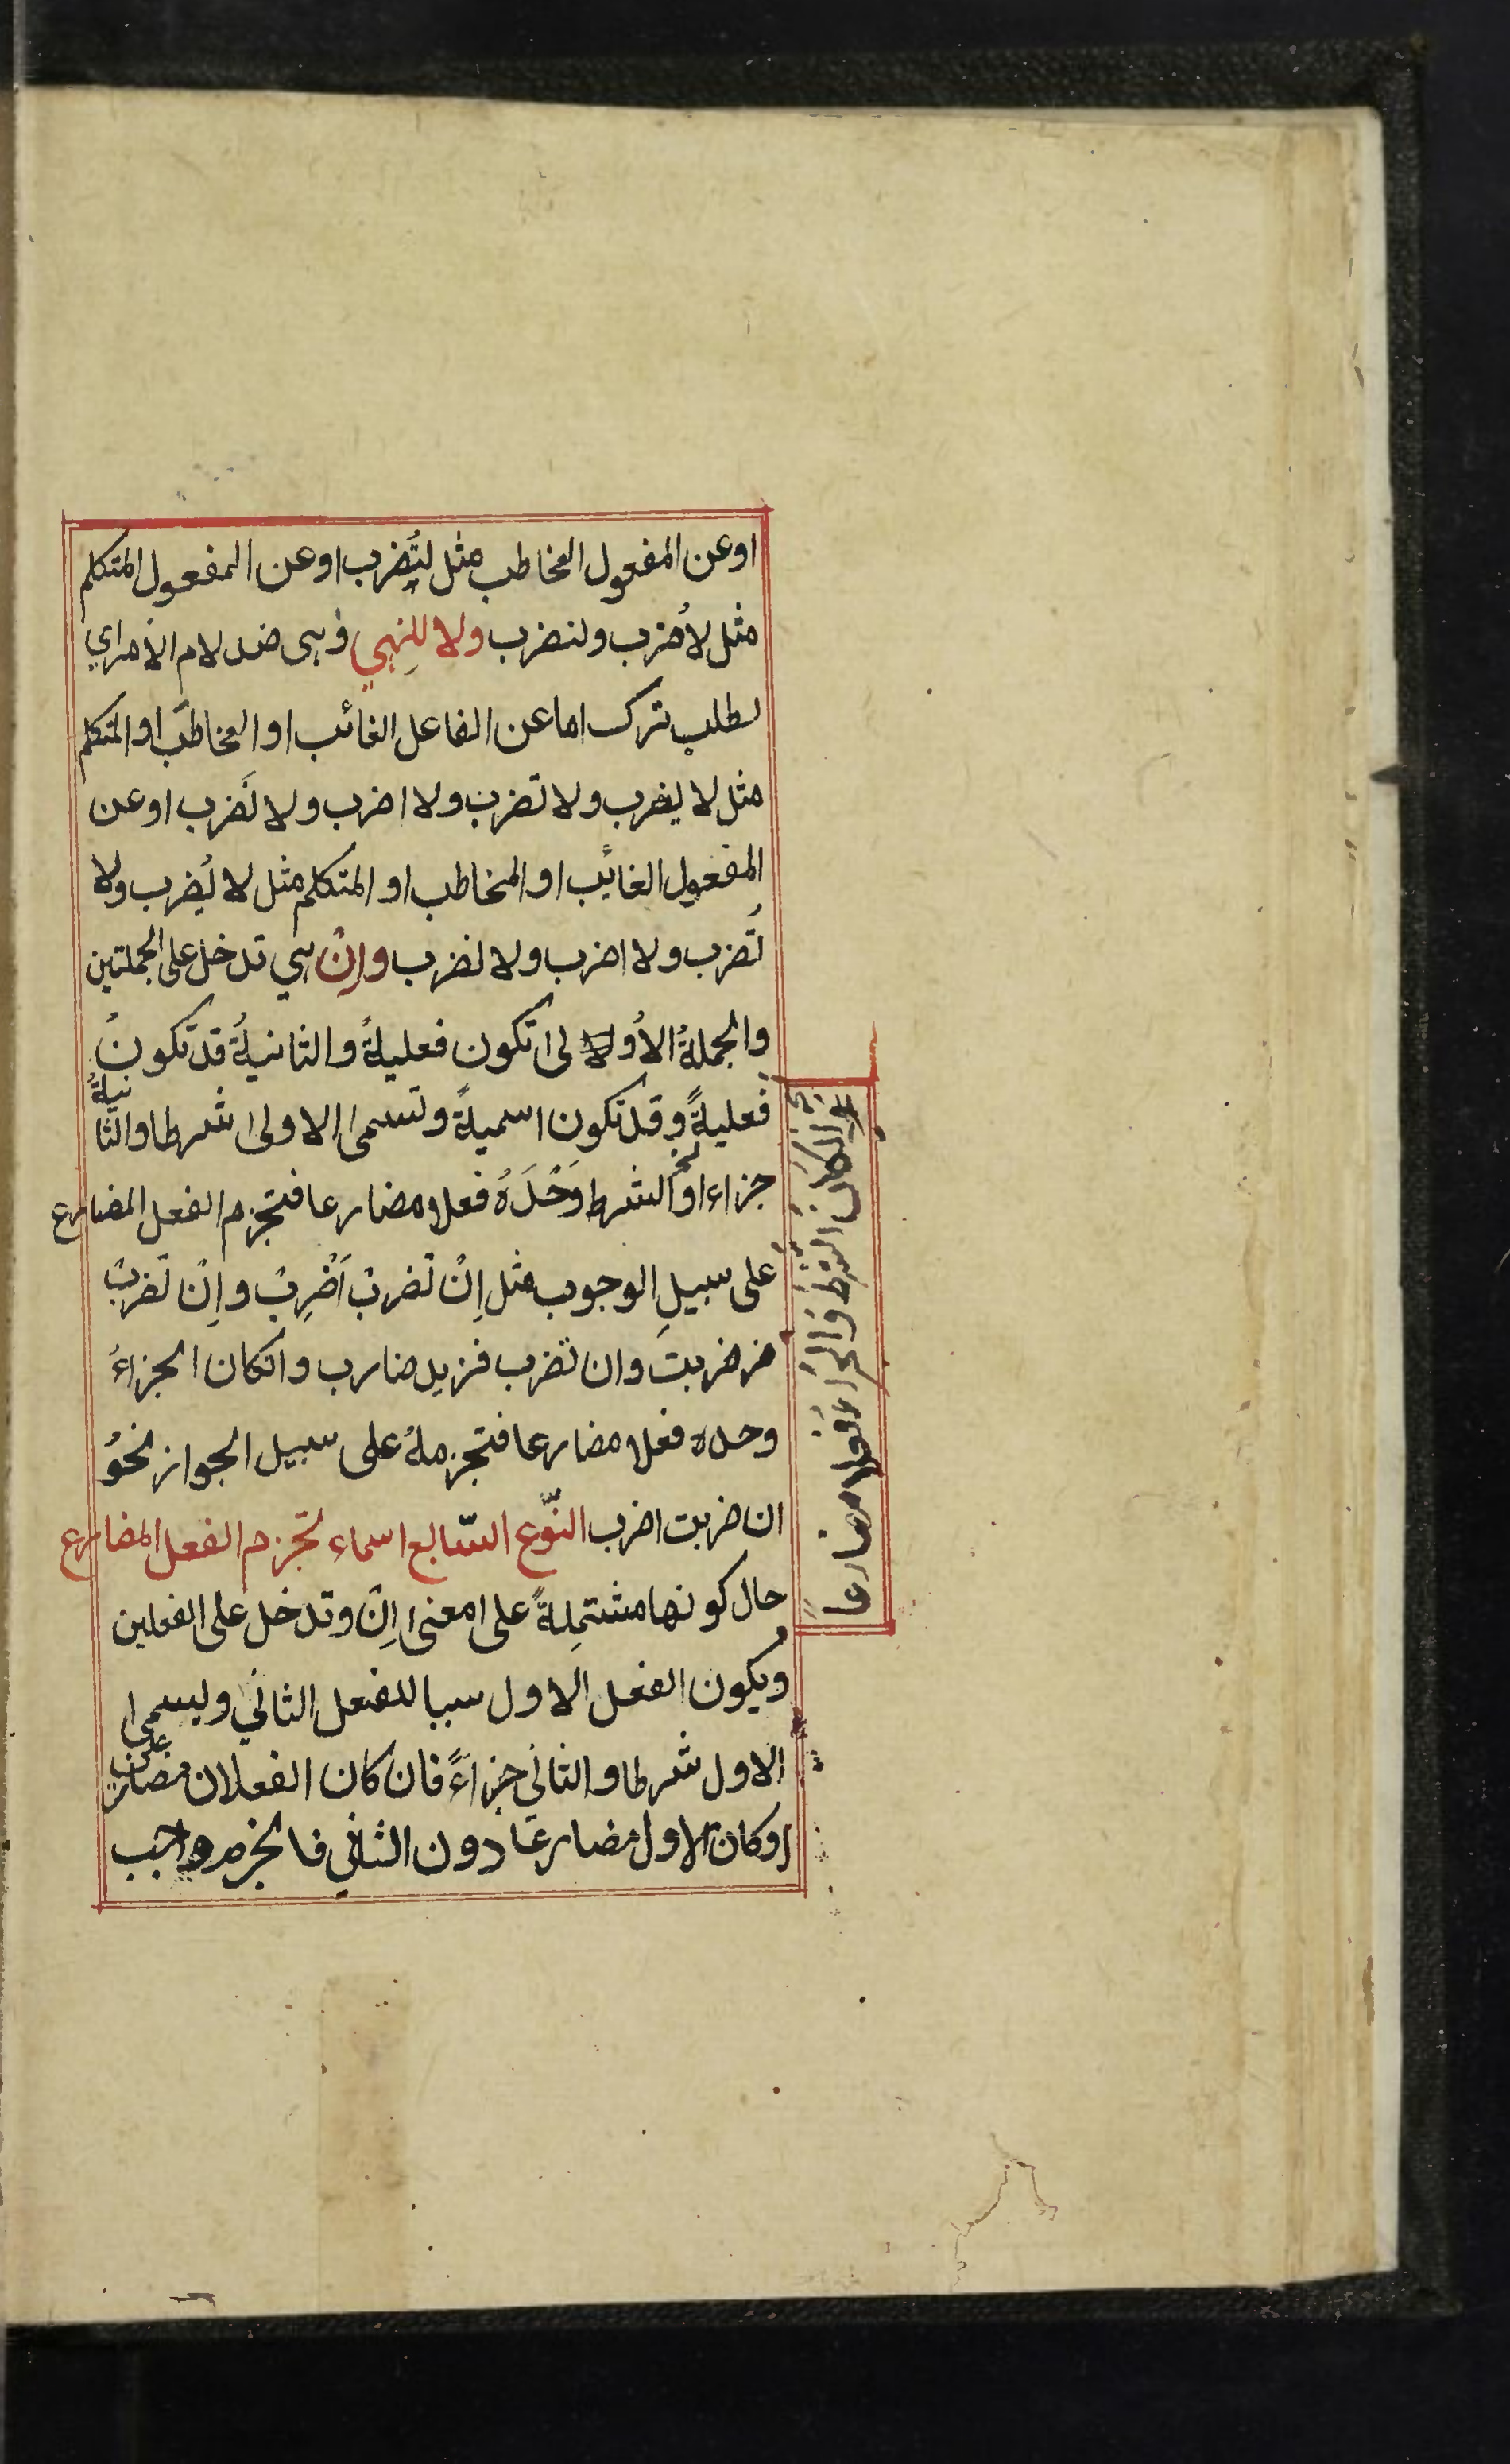 اوعن المفعول المخاطب مثل لتُضرب اوعن المفعول المتكلم
مثل لاُضرب ولنضرب ولا للنهي وهى ضد لام الامر اي
لطلب ترك اما عن الفاعل الغائب او المخاطب او المتكلم
مثل لا يضرب ولا تضرب ولا اضرب ولا نَضرب اوعن
المفعول الغائب او المخاطب او المتكلم مثل لا يُضرب ولا
تُضرب ولا اضرب ولا نضرب وإنْ هي تدخل على الجملتين
والجملةُ الاُولى تكون فعليةً والثانيةُ قد تكونُ
فعليةً وقد تكون اسميةً وتسمى الاولى شرطا والثانيةُ
جزاء او الشرط وَحْدَهُ فعلا مضارعا فتجزم الفعل المضارع
على سبيلِ الوجوب مثل اِنْ تضربْ اَضْرِبْ واِنْ تضربْ
ضربتَ وان تضرب فزيد ضارب وانكان الجزاءُ
وحده فعلا مضارعا فتجزمهُ على سبيل الجواز نحوُ
ان ضربت اضرب النّوع السّابع اسماء تجزم الفعل المضارع
حال كونها مشتمِلةً على معنى اِنْ وتدخل على الفعلين
ويكون الفعل الاول سببا للفعل الثاني ويسمى
الاول شرطا والثاني جزاءً فان كان الفعلان مضارعين
اوكان الاول مضارعًا دون الثاني فالجزم واجب
الشرط والجزاء فعلا مضارعا